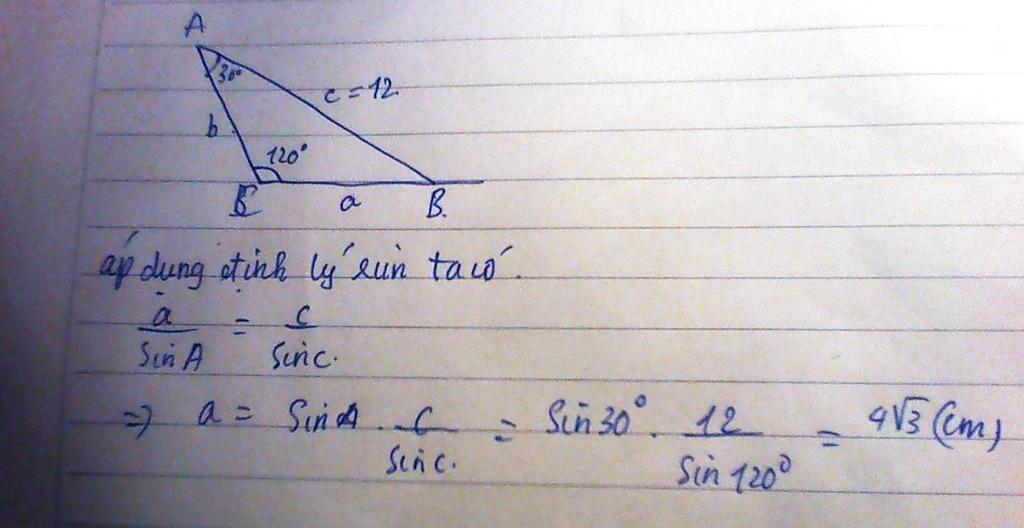 A
30°
c = 12
b
120°
C
a
B.
áp dụng định lý sin ta có.
a/Sin A = c/Sin c.
=> a = Sin A . c/Sin c. = Sin 30° . 12/Sin 120° = 4√3 (cm)